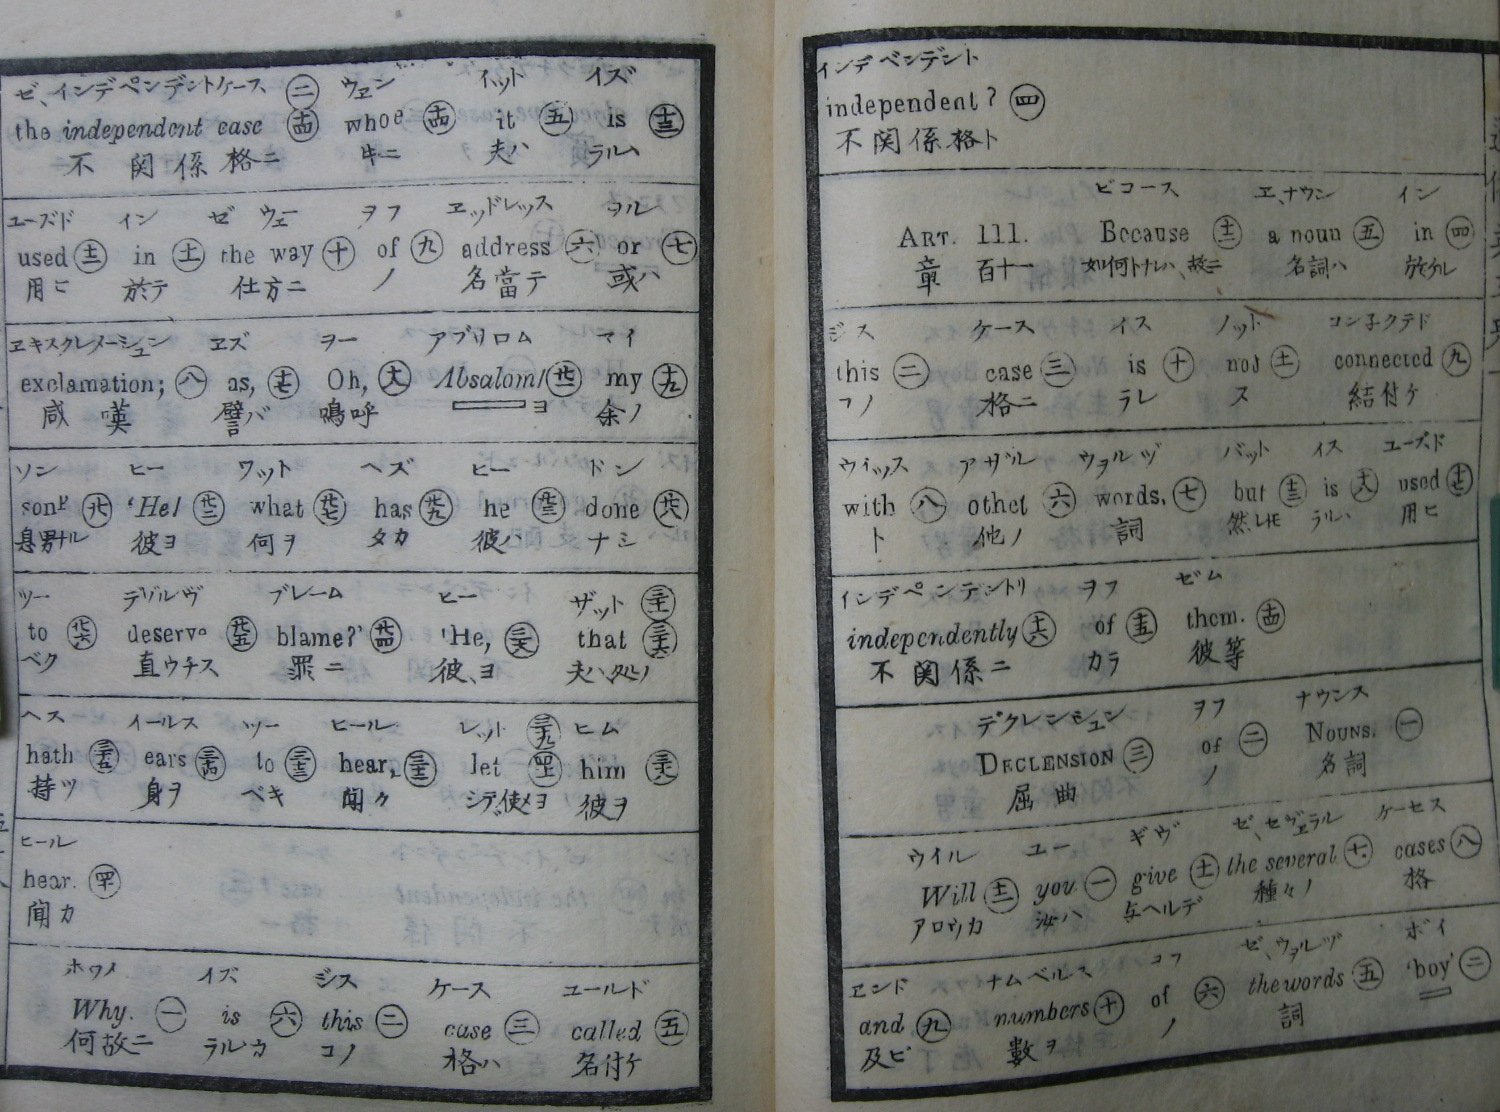 ゼ、インデペンデントケース、 ウヱン イット イズ
the independent case 二 十四 whoe 十四 it 五 is 十三
不関係格ニ 牛ニ 夫ハ ラルハ
ユーズド イン ゼ ウェー ヲフ ヱッドレッス ヲル
used 十二 in 十一 the way 十 of 九 address 六 or 七
用ヒ 於テ 仕方ニ ノ 名當テ 或ハ
ヱキスクレメーション ヱズ ヲー アブリロム マイ
exclamation; 八 as, 十七 Oh, 十八 Absalom! 廿一 my 十九
咸嘆 譬バ 嗚呼 ヨ 余ノ
ソン ヒー ワット ヘズ ヒー ドン
son! 廿 'He! 廿二 what 廿七 has 廿九 he 廿三 done 廿八
息男ナル 彼ヨ 何ヲ タカ 彼ハ ナシ
ツー デゾルヴ ブレーム ヒー ザット
to 廿六 deserve 廿五 blame?' 廿四 'He, 三十六 that 三十一
ベク 直ウチス 罪ニ 彼、ヨ 夫ハ、処ノ
ヘス イールス ツー ヒール レット ヒム
hath 三十五 ears 三十四 to 三十三 hear, 三十二 let 三十九 四十一 him 三十八
持ツ 身ヲ ベキ 聞ク シテ使メヨ 彼ヲ
ヒール
hear. 四十
聞カ
ホワイ イズ ジス ケース ユールド
Why. 一 is 六 this 二 case 三 called 五
何故ニ ラルカ コノ 格ハ 名付ケ
インデペンデント
independent? 四
不関係格ト
ビコース ヱ、ナウン イン
ART. 111. Because 十二 a noun 五 in 四
章 百十一 如何トナレハ、故ニ 名詞ハ 於ケル
ジス ケース イス ノット コン子クテド
this 二 case 三 is 十 not 十一 connected 九
コノ 格ニ ラレ ス 結付ケ
ウイッス アザル ウヲルヅ バット イス ユーズド
with 八 othet 六 words, 七 but 十三 is 十八 used 十七
ト 他ノ 詞 然レ𪜈 ラルハ 用ヒ
インデペンデントリ ヲフ ゼム
independently 十六 of 十五 them. 十四
不関係ニ カラ 彼等
デクレンション ヲフ ナウンス
DECLENSION 三 of 二 NOUNS. 一
屈曲 ノ 名詞
ウイル ユー ギヴ ゼ、セヴェラル ケーセス
Will 十二 you 一 give 十一 the several 七 cases 八
アロウカ 汝ハ 与ヘルデ 種々ノ 格
ヱンド ナムベルス ヲフ ゼ、ウヲルヅ ボイ
and 九 numbers 十 of 六 the words 五 'boy' 二
及ビ 数ヲ ノ 詞